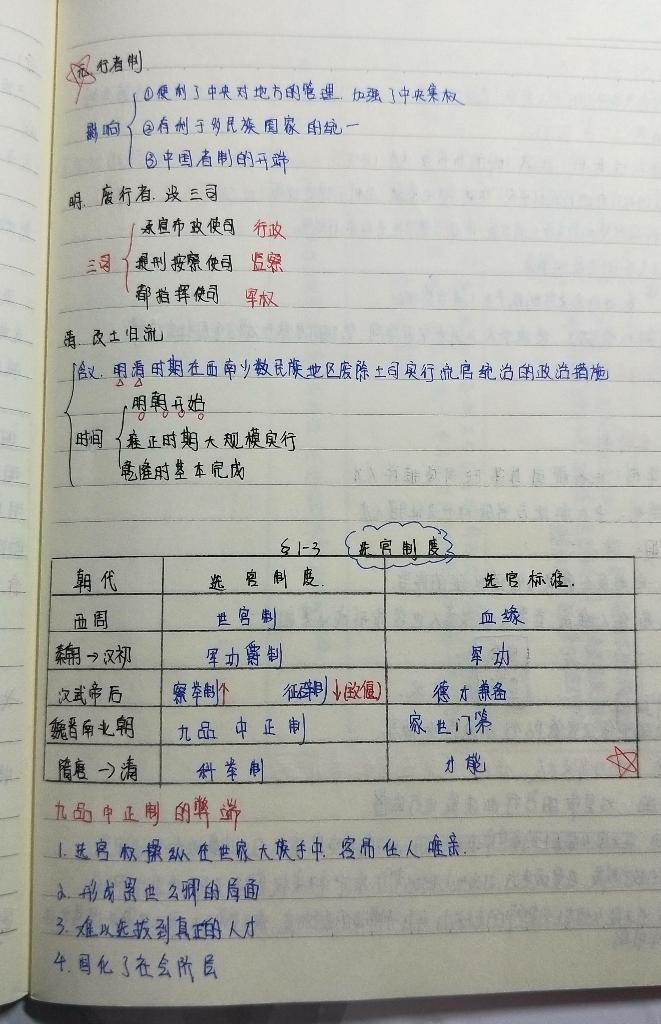 元 行省制
影响
①便利了中央对地方的管理.加强了中央集权
②有利于多民族国家的统一
③中国省制的开端
明. 废行省.设三司
三司
承宣布政使司 行政
提刑按察使司 监察
都指挥使司 军权
清. 改土归流
含义.明清时期在西南少数民族地区废除土司实行流官统治的政治措施
时间
明朝开始
雍正时期大规模实行
乾隆时基本完成
§1-3 选官制度
朝代 选官制度. 选官标准.
西周 世官制 血缘
秦朝→汉初 军功爵制 军功
汉武帝后 察举制↑ 征辟制↓ 德才兼备
魏晋南北朝 九品中正制 家世门第
隋唐→清 科举制 才能
九品中正制的弊端
1.选官权操纵在世家大族手中.容易任人唯亲.
2.形成累世公卿的局面
3.难以选拔到真正的人才
4.固化了社会阶层